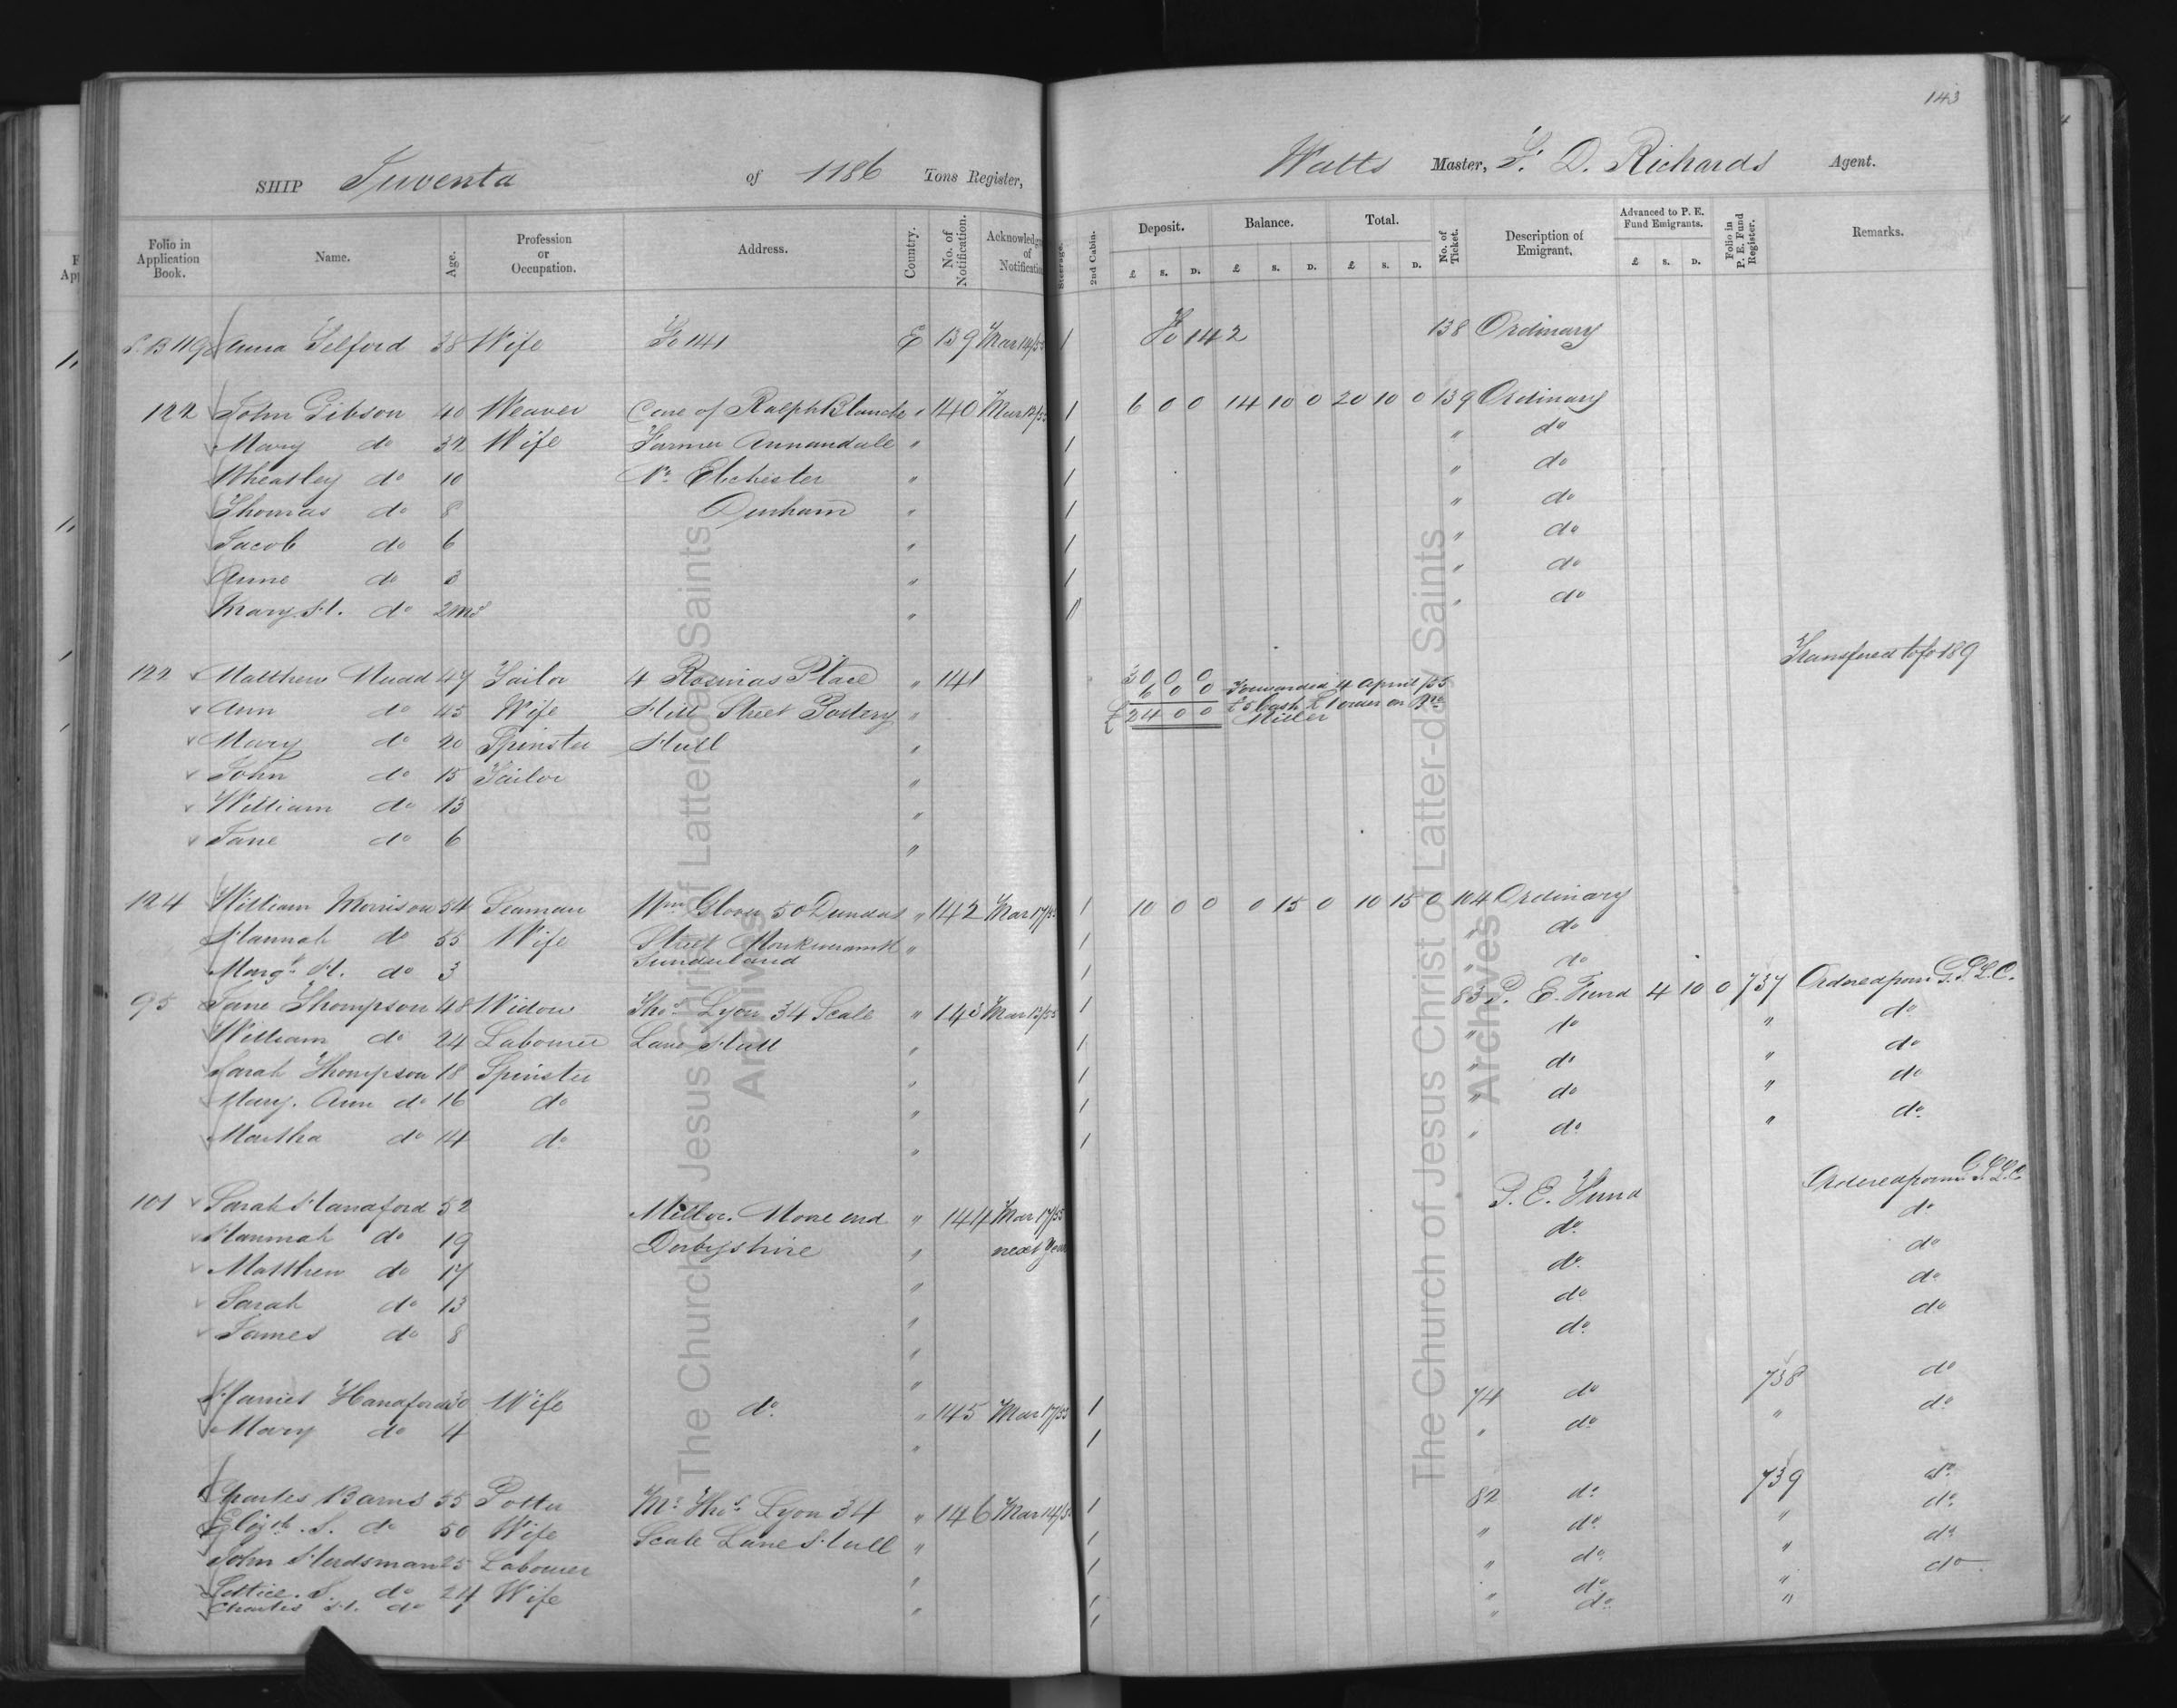 143
SHIP Juventa of 1186 Tons Register, Watts Master, F. D. Richards Agent.
Folio in Application Book. Name. Age. Profession or Occupation. Address. Country. No. of Notification. Acknowledg of Notificatio Steerage. 2nd Cabin. Deposit. £ S. D. Balance. £ S. D. Total. £ S. D. No. of Ticket. Description of Emigrant. Advanced to P. E. Fund Emigrants. £ S. D. Folio in P. E. Fund Register. Remarks.
P.B 119 Anna Telford 38 Wife Fo 141 E 139 Mar 14/55 1 Fo 142 138 Ordinary
122 John Gibson 40 Weaver Care of Ralph Blanche " 140 Mar 12/55 1 6 0 0 14 10 0 20 10 0 139 Ordinary
Mary do 32 Wife Farmer Annandale " 1 " do
Wheatley do 10 Nr. Ebchester " 1 " do
Thomas do 8 Durham " 1 " do
Jacob do 6 " 1 " do
Anne do 3 " 1 " do
Mary H. do 2 mos " 1 " do
122 Matthew Mudd 47 Tailor 4 Rosinas Place " 141 30 0 0 Transfered to fo 189
6 0 0 Forwarded 4 April /55
Ann do 45 Wife Hill Street Pottery " £ 24 0 0 £5 Cash £1 order on
Miller
Mary do 20 Spinster Hull "
John do 15 Tailor "
William do 13 "
Jane do 6 "
124 William Morrison 54 Seaman Wm Glover 50 Dundas " 142 Mar 17/55 1 10 0 0 0 15 0 10 15 0 104 Ordinary
Hannah do 55 Wife Street Monkwearmth " 1 " do
Sunderland
Margt. H. do 3 1 " do
95 Jane Thompson 48 Widow Thos. Lyon 34 Scale " 143 Mar 12/55 1 83 P. E. Fund 4 10 0 737 Ordered from G.S.L.C.
William do 24 Labourer Lane Hull " 1 " do " do
Sarah Thompson 18 Spinster " 1 " do " do
Mary Ann do 16 do " 1 " do " do
Martha do 14 do " 1 " do " do
101 Sarah Handford 52 Milton. Moore end " 144 Mar 17/55 P. E. Fund Ordered from G.S.L.C
Hannah do 19 Derbyshire " next year do do
Matthew do 17 " do do
Sarah do 13 " do do
James do 8 " do do
Harriet Handford 30 Wife do " 145 Mar 17/55 1 74 do 738 do
Mary do 4 " 1 " do " do
Charles Barnes 55 Potter Mr. Thos. Lyon 34 " 146 Mar 14/5 1 82 do 739 do
Elizth. S. do 50 Wife Scale Lane Hull " 1 " do " do
John Herdsman 25 Labourer " 1 " do " do
Lettice. S. do 24 Wife " 1 " do " do
Charles H. do 1 1 " do "
The Church of Jesus Christ of Latter-day Saints
Archives
The Church of Jesus Christ of Latter-day Saints
Archives